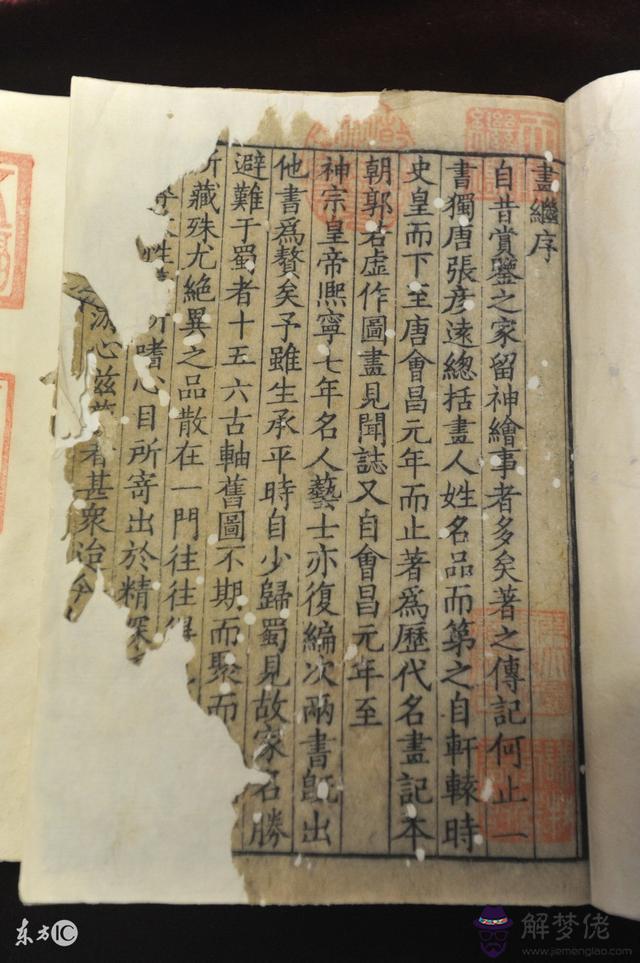 畫繼序
自昔賞鑒之家留神繪事者多矣著之傳記何止一
書獨唐張彥遠總括畫人姓名品而第之自軒轅時
史皇而下至唐會昌元年而止著爲歷代名畫記本
朝郭若虛作圖畫見聞誌又自會昌元年至
神宗皇帝熈寧七年名人藝士亦復編次兩書旣出
他書爲贅矣予雖生承平時自少歸蜀見故家名勝
避難于蜀者十五六古軸舊圖不期而聚而
所藏殊尤絶異之品散在一門往往得
性所嗜心目所寄出於精深
游心兹藝者甚衆迨今
东方IC
解梦佬
www.jiemenglao.com